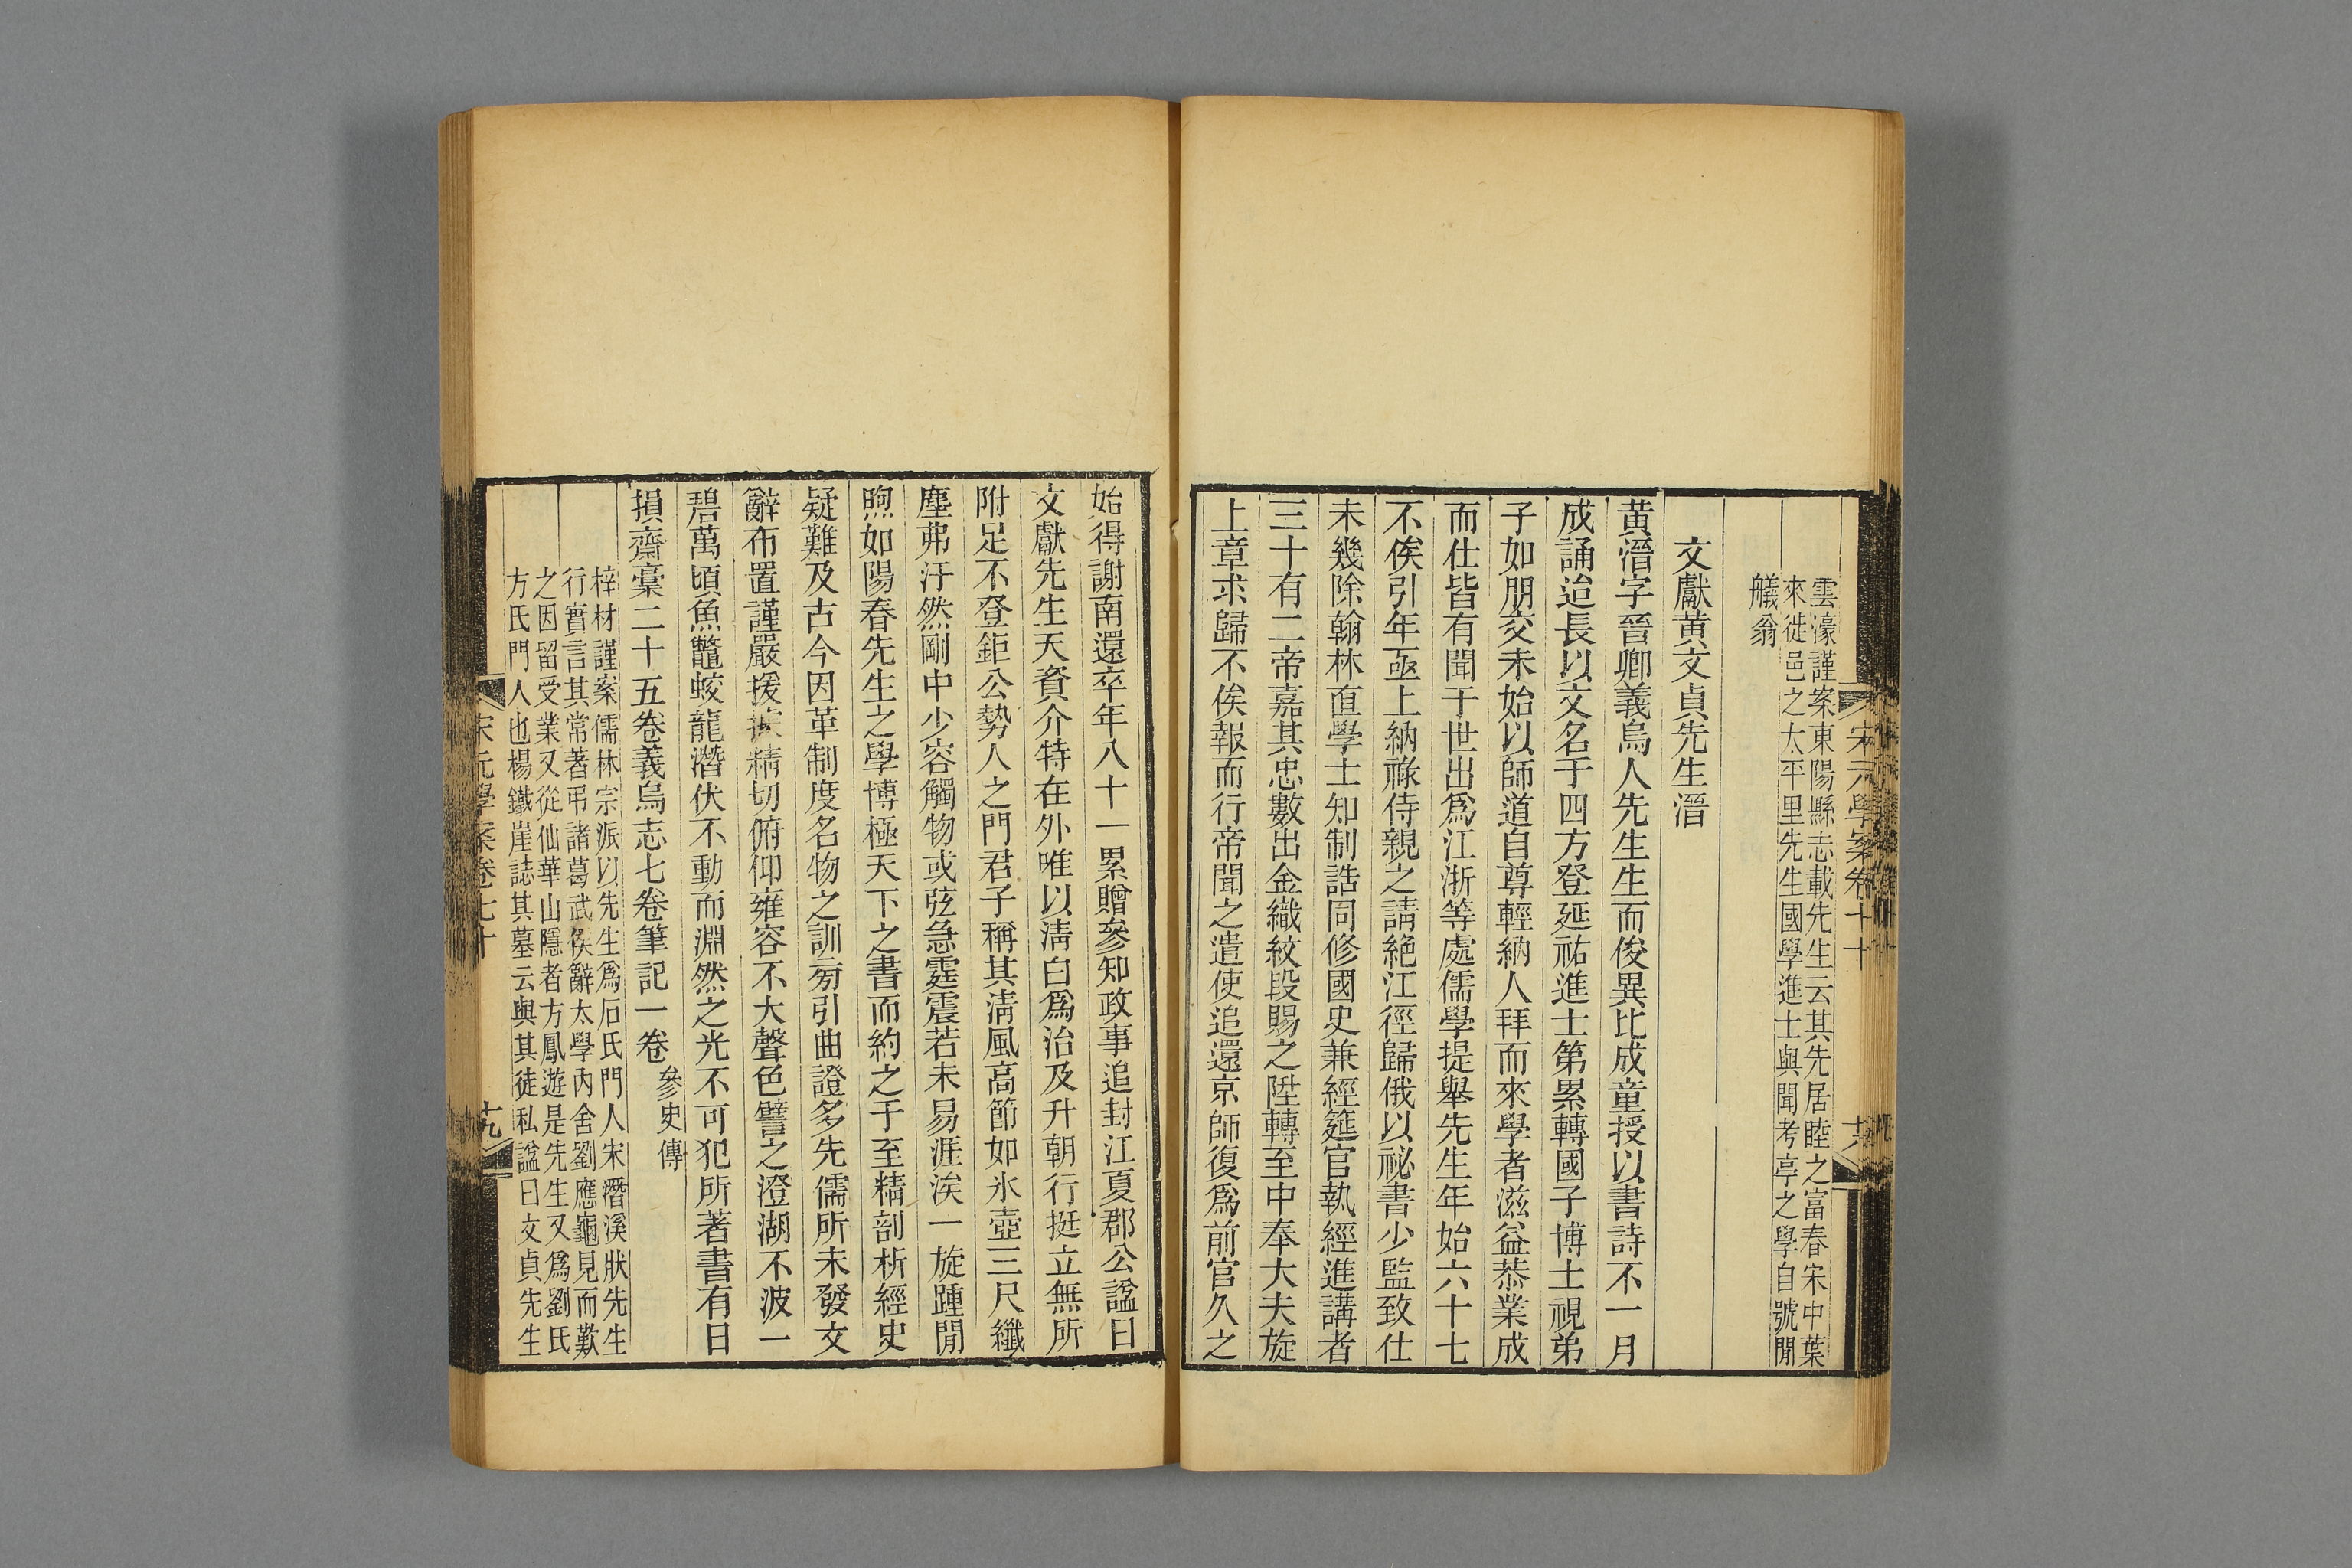 雲濠謹案東陽縣志載先生云其先居睦之富春宋中葉
來徙邑之太平里先生國學進士與聞考亭之學自號閒
艤翁
文獻黃文貞先生溍
黃溍字晉卿義烏人先生生而俊異比成童授以書詩不一月
成誦迨長以文名于四方登延祐進士第累轉國子博士視弟
子如朋交未始以師道自尊輕納人拜而來學者滋益恭業成
而仕皆有聞于世出爲江浙等處儒學提舉先生年始六十七
不俟引年亟上納祿侍親之請絕江徑歸俄以祕書少監致仕
未幾除翰林直學士知制誥同修國史兼經筵官執經進講者
三十有二帝嘉其忠數出金織紋段賜之陞轉至中奉大夫旋
上章求歸不俟報而行帝聞之遣使追還京師復爲前官久之
宋元學案卷七十
十八
始得謝南還卒年八十一累贈參知政事追封江夏郡公諡曰
文獻先生天資介特在外唯以淸白爲治及升朝行挺立無所
附足不登鉅公勢人之門君子稱其淸風高節如氷壺三尺纖
塵弗汙然剛中少容觸物或弦急霆震若未易涯涘一旋踵閒
煦如陽春先生之學博極天下之書而約之于至精剖析經史
疑難及古今因革制度名物之訓旁引曲證多先儒所未發文
辭布置謹嚴援據精切俯仰雍容不大聲色譬之澄湖不波一
碧萬頃魚鼈蛟龍潛伏不動而淵然之光不可犯所著書有日
損齋稾二十五卷義烏志七卷筆記一卷參史傳
梓材謹案儒林宗派以先生爲石氏門人宋潛溪狀先生
行實言其常著弔諸葛武侯辭太學內舍劉應龜見而歎
之因留受業又從仙華山隱者方鳳遊是先生又爲劉氏
方氏門人也楊鐵崖誌其墓云與其徒私諡曰文貞先生
宋元學案卷七十
十九